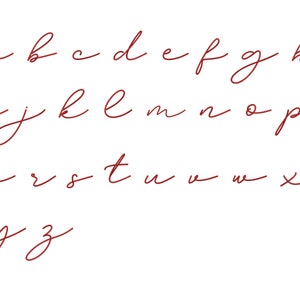 b c d e f g h
j k l m n o p
r s t u v w x
y z